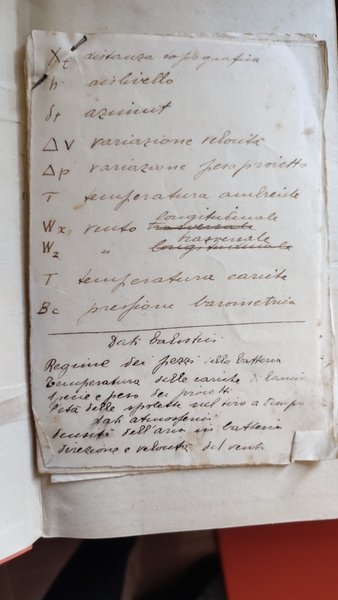 Xt distanza topografica
h dislivello
δt azimut
Δ V variazione velocità
Δ p variazione peso proietto
T temperatura ambiente
longitudinale
Wx vento trasversale
trasversale
Wz " longitudinale
T temperatura cariche
Bc pressione barometrica
Dati balistici
Regime dei pezzi della batteria
Temperatura delle cariche di lancio
Specie e peso dei proietti
delle spolette nel tiro a tempo
dati atmosferici
densità dell'aria in batteria
direzione e velocità del vento